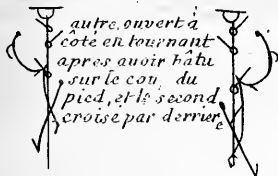 autre, ouvert à
côté en tournant
apres avoir bâtu
sur le cou du
pied, et le second
croise par derriere